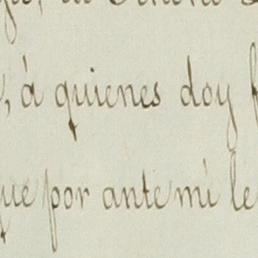 , á quienes doy
que por ante mi le